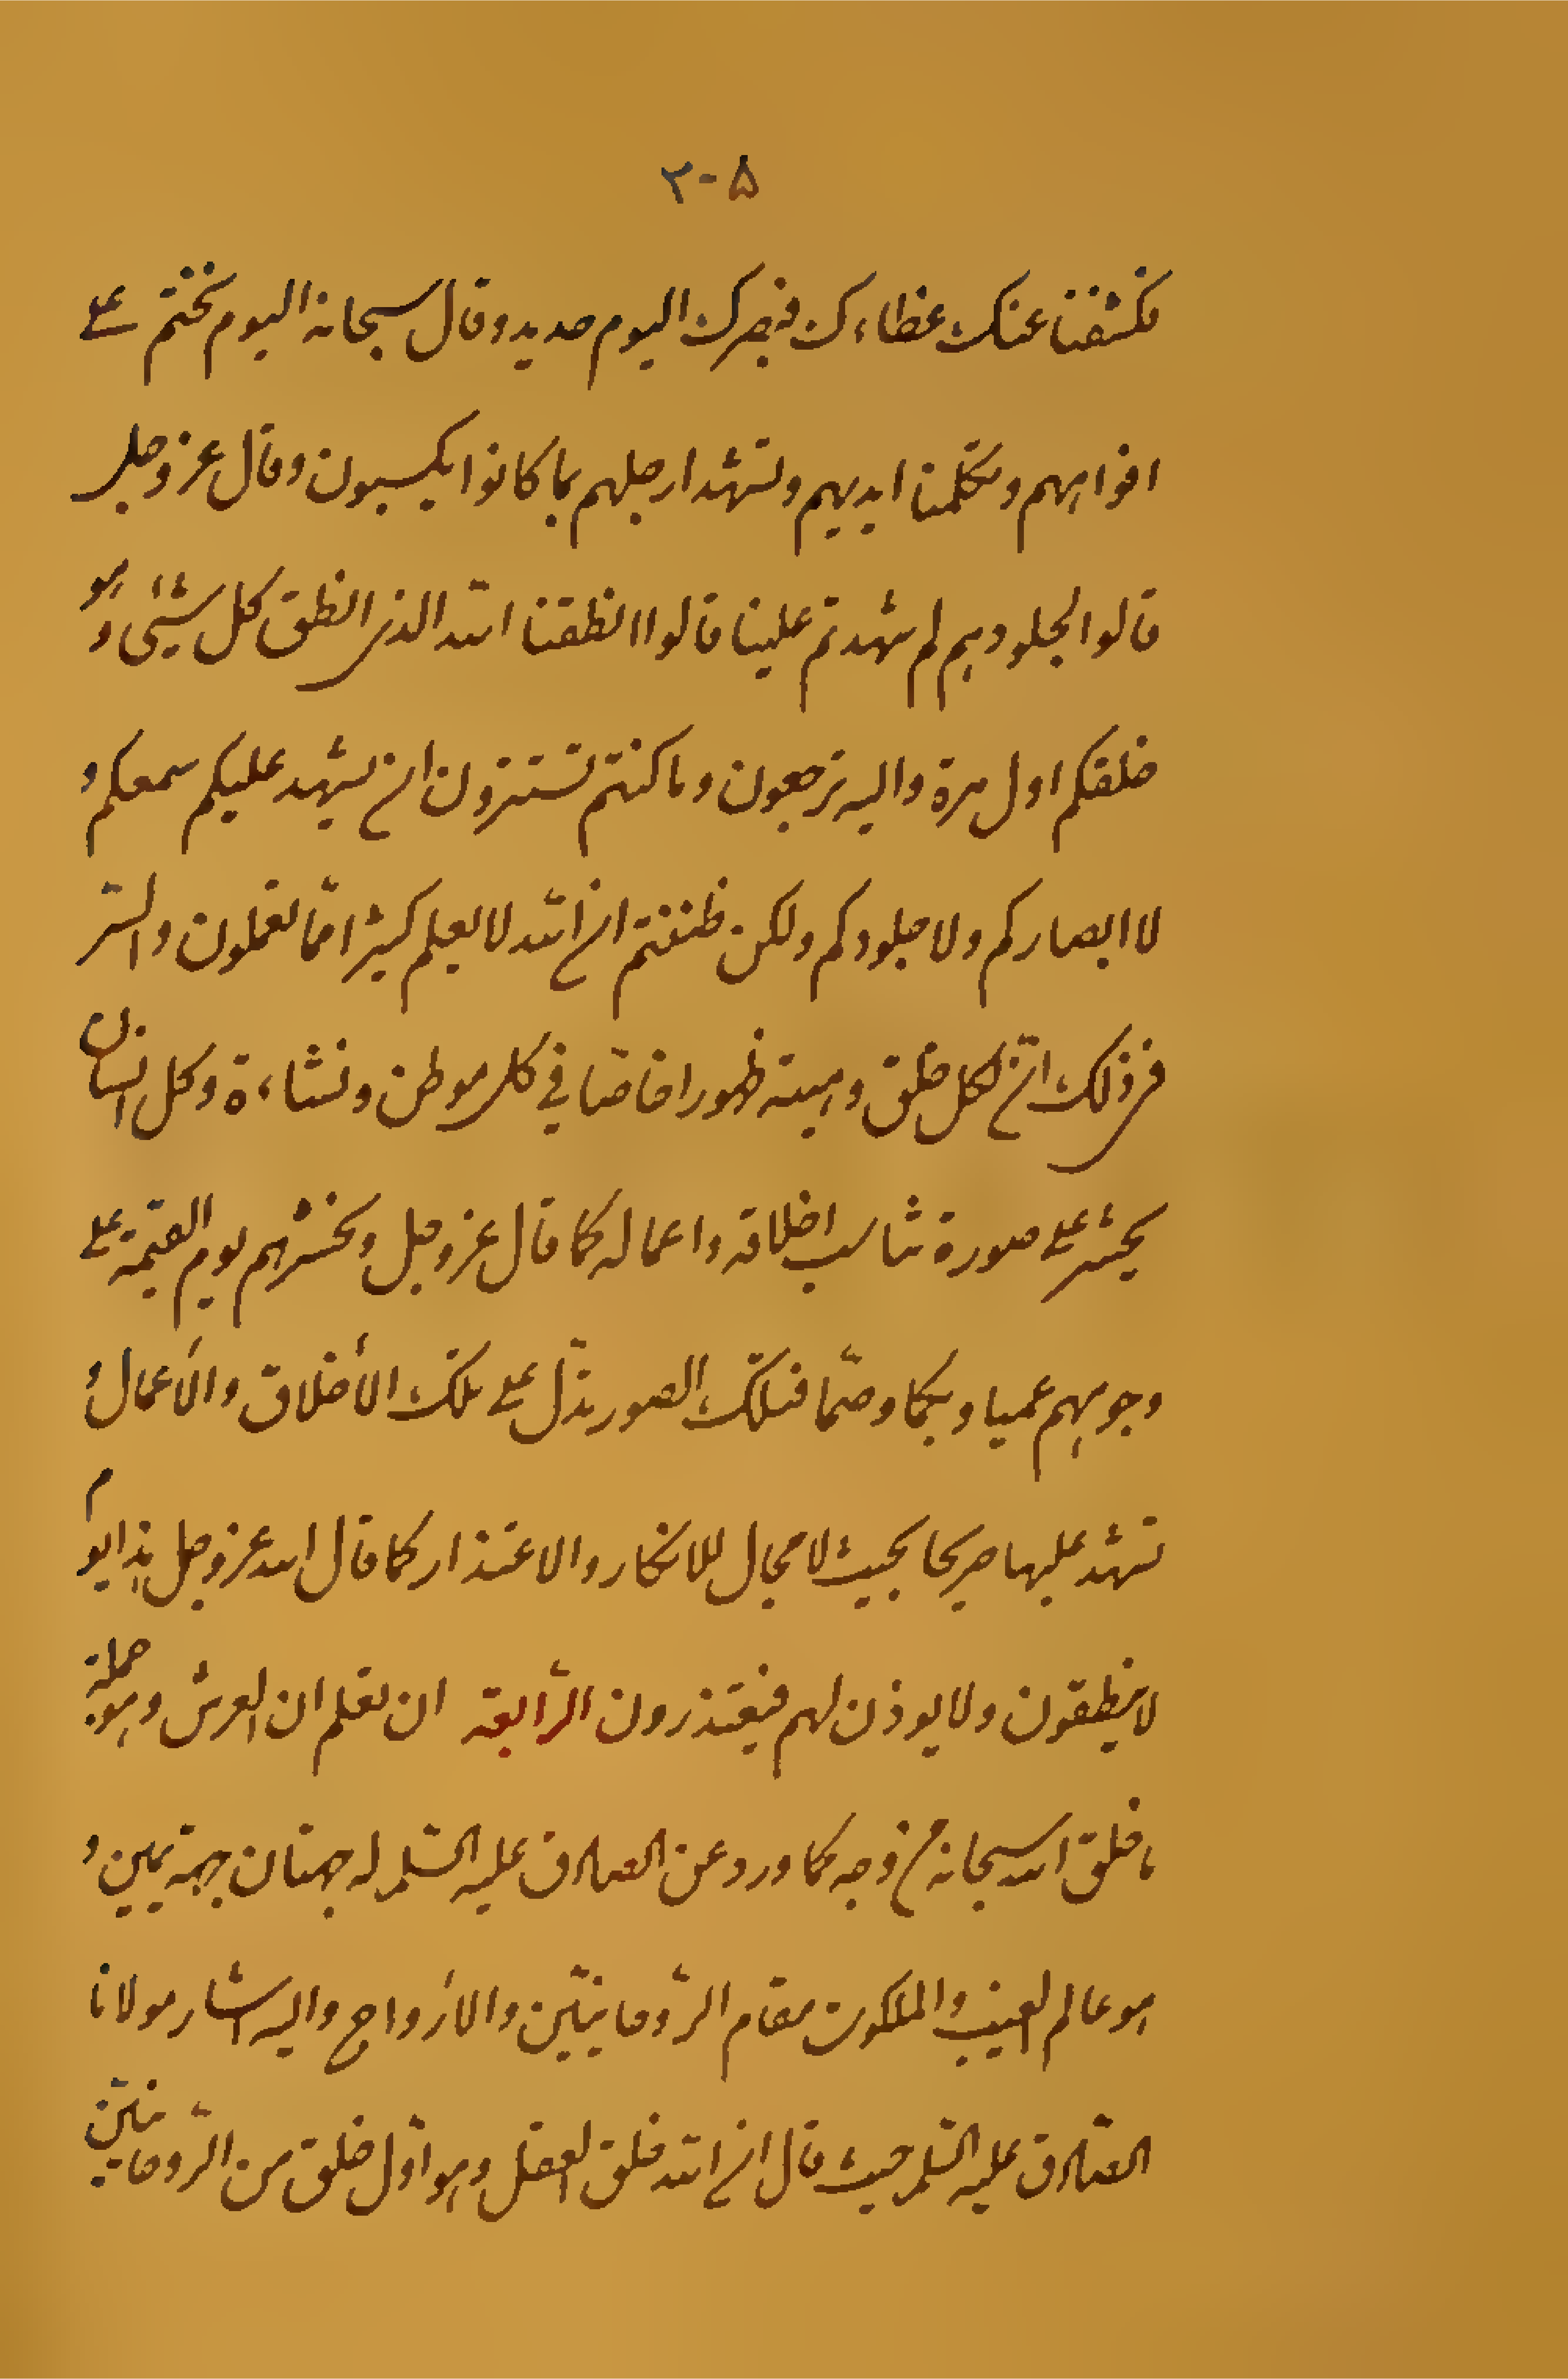 ٣-۵
فكشفنا عنك غطاءك فبصرك اليوم حديد وقال سبحانه اليوم نختم على
افواههم وتكلمنا ايديهم وتشهد ارجلهم بما كانوا يكسبون وقال عز وجل
قالوا لجلودهم لم شهدتم علينا قالوا انطقنا الله الذي انطق كل شيئ وهو
خلقكم اول مرة واليه ترجعون وما كنتم تستترون ان يشهد عليكم سمعكم و
لا ابصاركم ولا جلودكم ولكن ظننتم ان الله لا يعلم كثيرا ممّا تعملون والسّر
في ذلك انّ لكل خلق وهيئة ظهورا خاصّا في كل موطن ونشاءة وكل انسان
يحشر على صورة تناسب اخلاقه واعماله كما قال عز وجل ونحشرهم يوم القيمة على
وجوههم عميا وبكما وصمّا فتلك الصور تدّل على تلك الأخلاق والأعمال و
تشهد عليها صريحا بحيث لا مجال للانكار والاعتذار كما قال الله عز وجل هذا يوم
لا ينطقون ولا يوذن لهم فيعتذرون الرّابعة ان تعلم ان العرش وهو جملة
ما خلق الله سبحانه من وجه كما ورد عن الصادق عليه السّلم له جهتان جهة يمين و
هو عالم الغيب والملكوت مقام الرّوحانيّين والأرواح واليه اشار مولانا
الصّادق عليه السّلم حيث قال ان الله خلق العقل وهو اوّل خلق من الرّوحانيّين